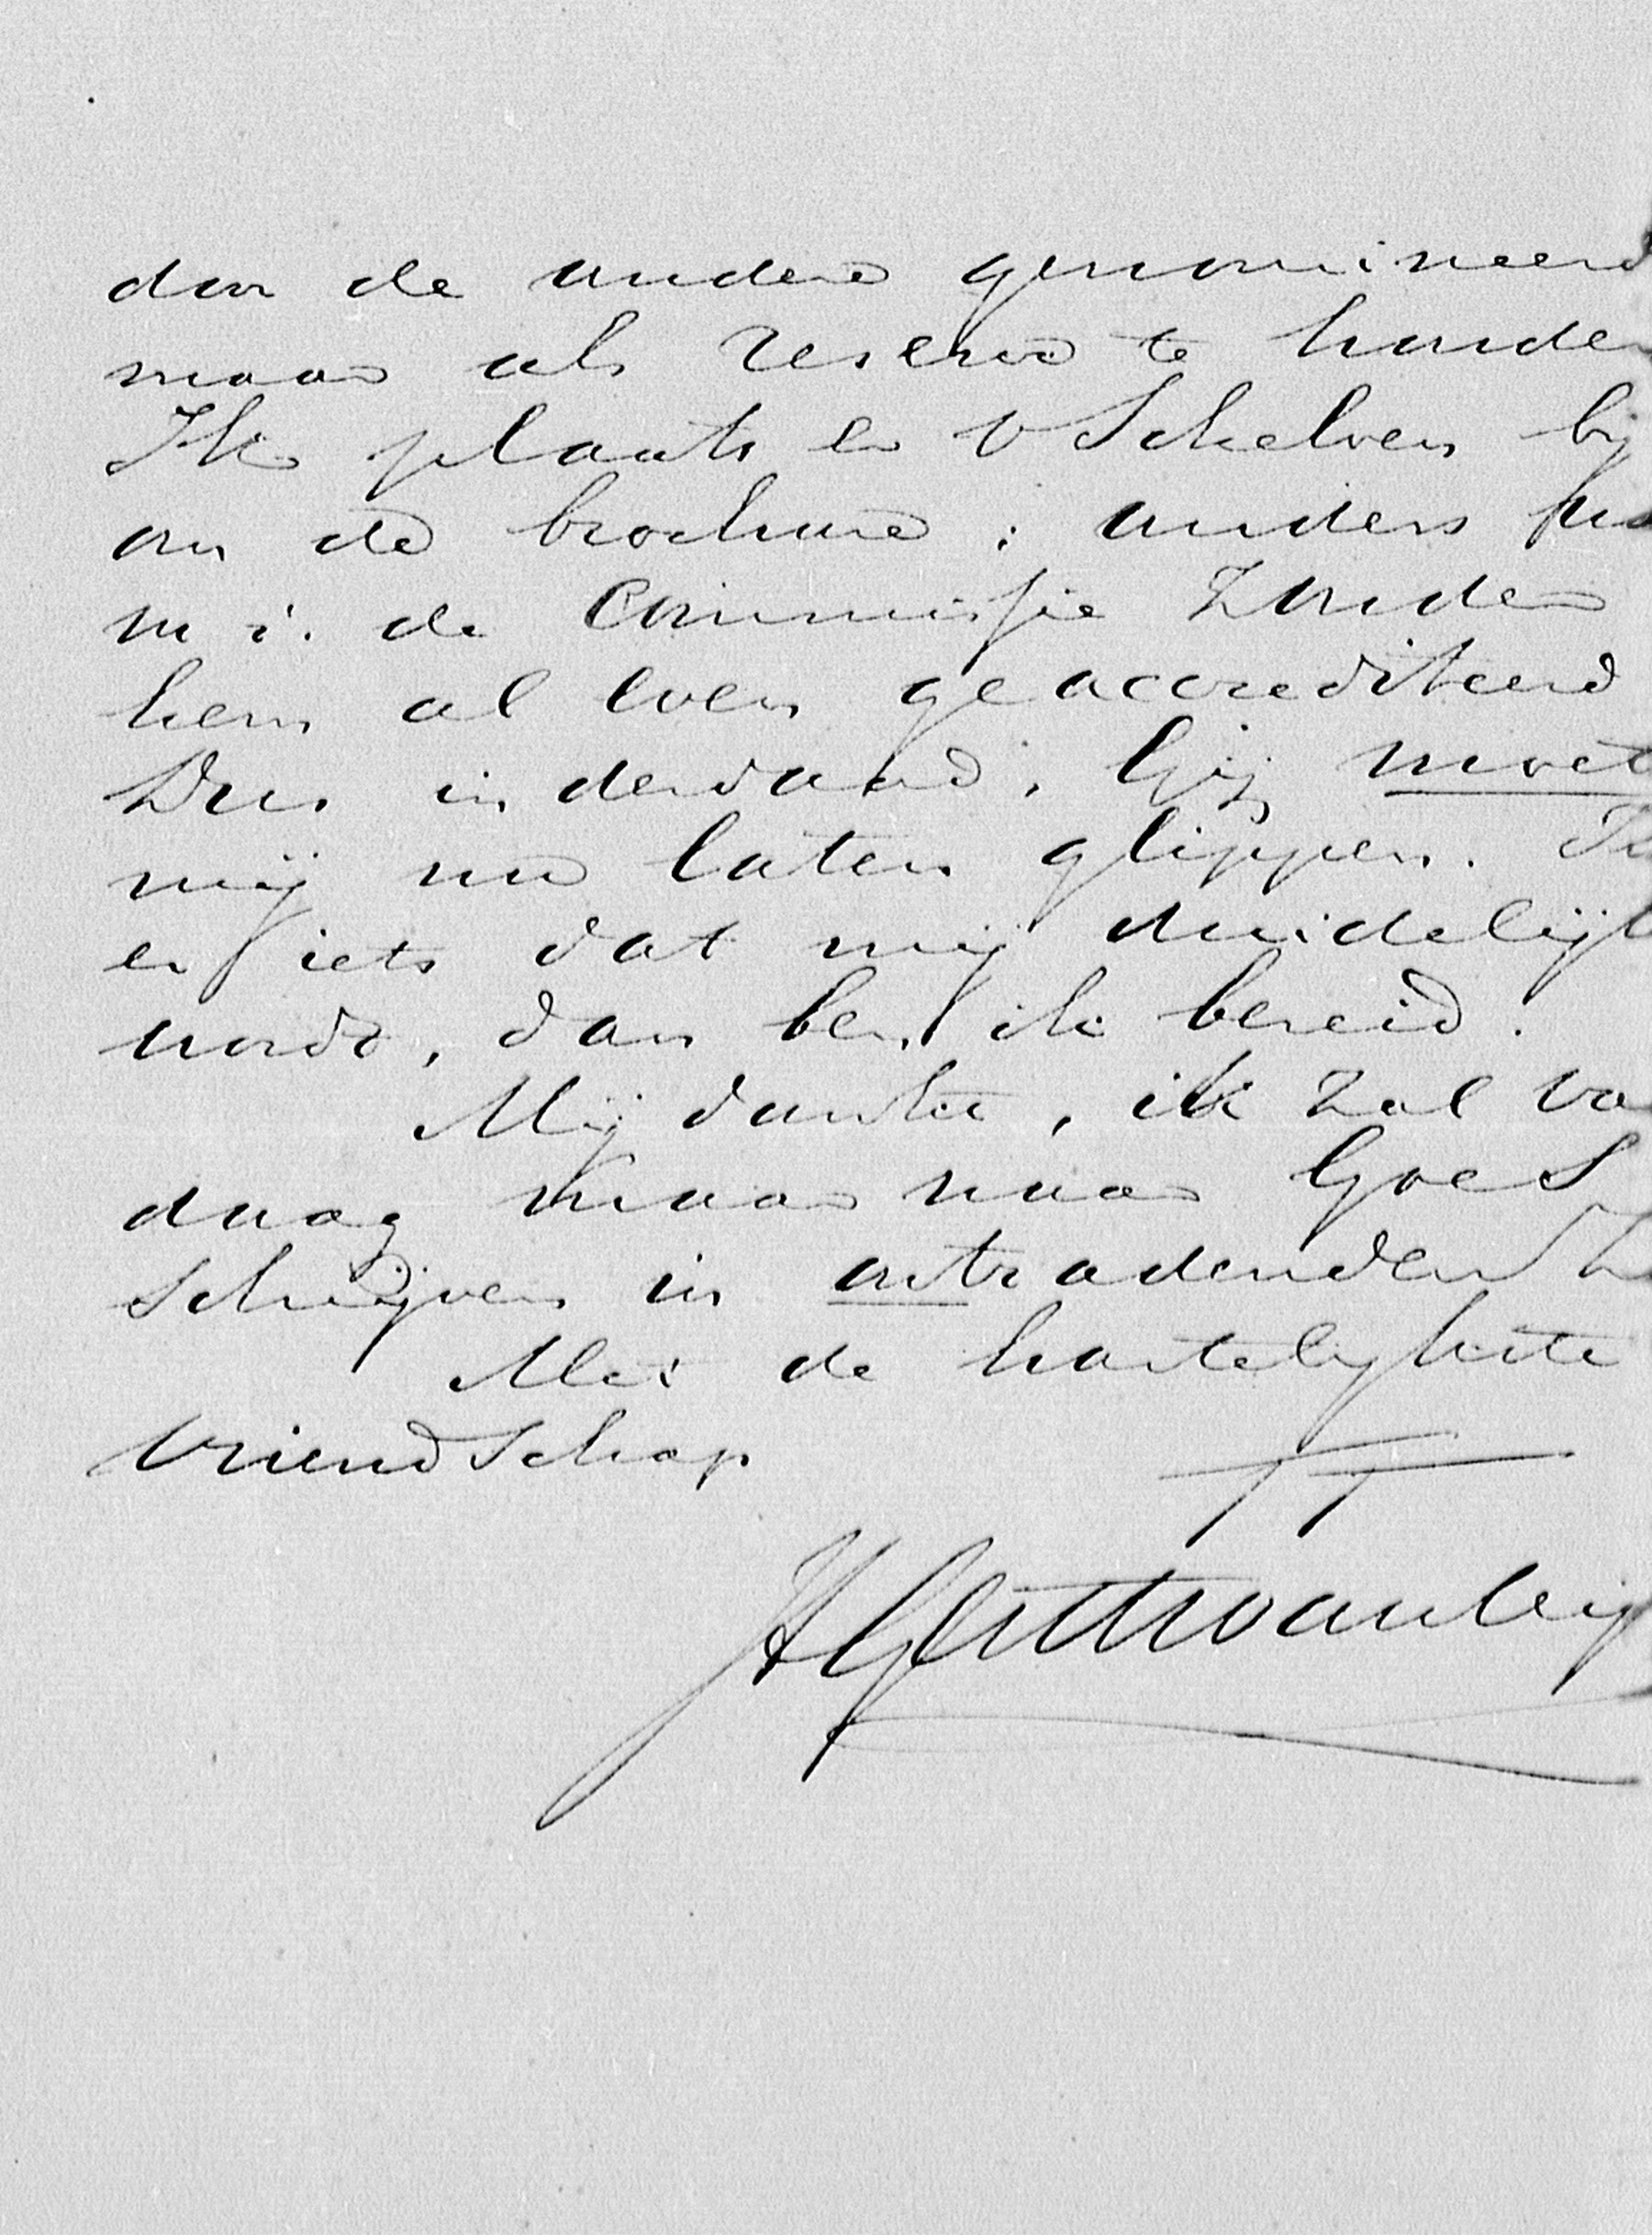 door de andere genomineerd
maar als reserve te houden
Ik plaats er v Schelven bij
om de brochure; anders
m i. de Commissie zonder
hem al even geaccrediteerd
Dus inderdaad. Gij moet
mij nu laten glippen.
er iets dat mij duidelijk
wordt, dan ben ik bereid.
Mij dunkt, ik zal van
daag maar naar Goes
schrijven in ontradenden
Met de hartelijkste
vriendschap
TT